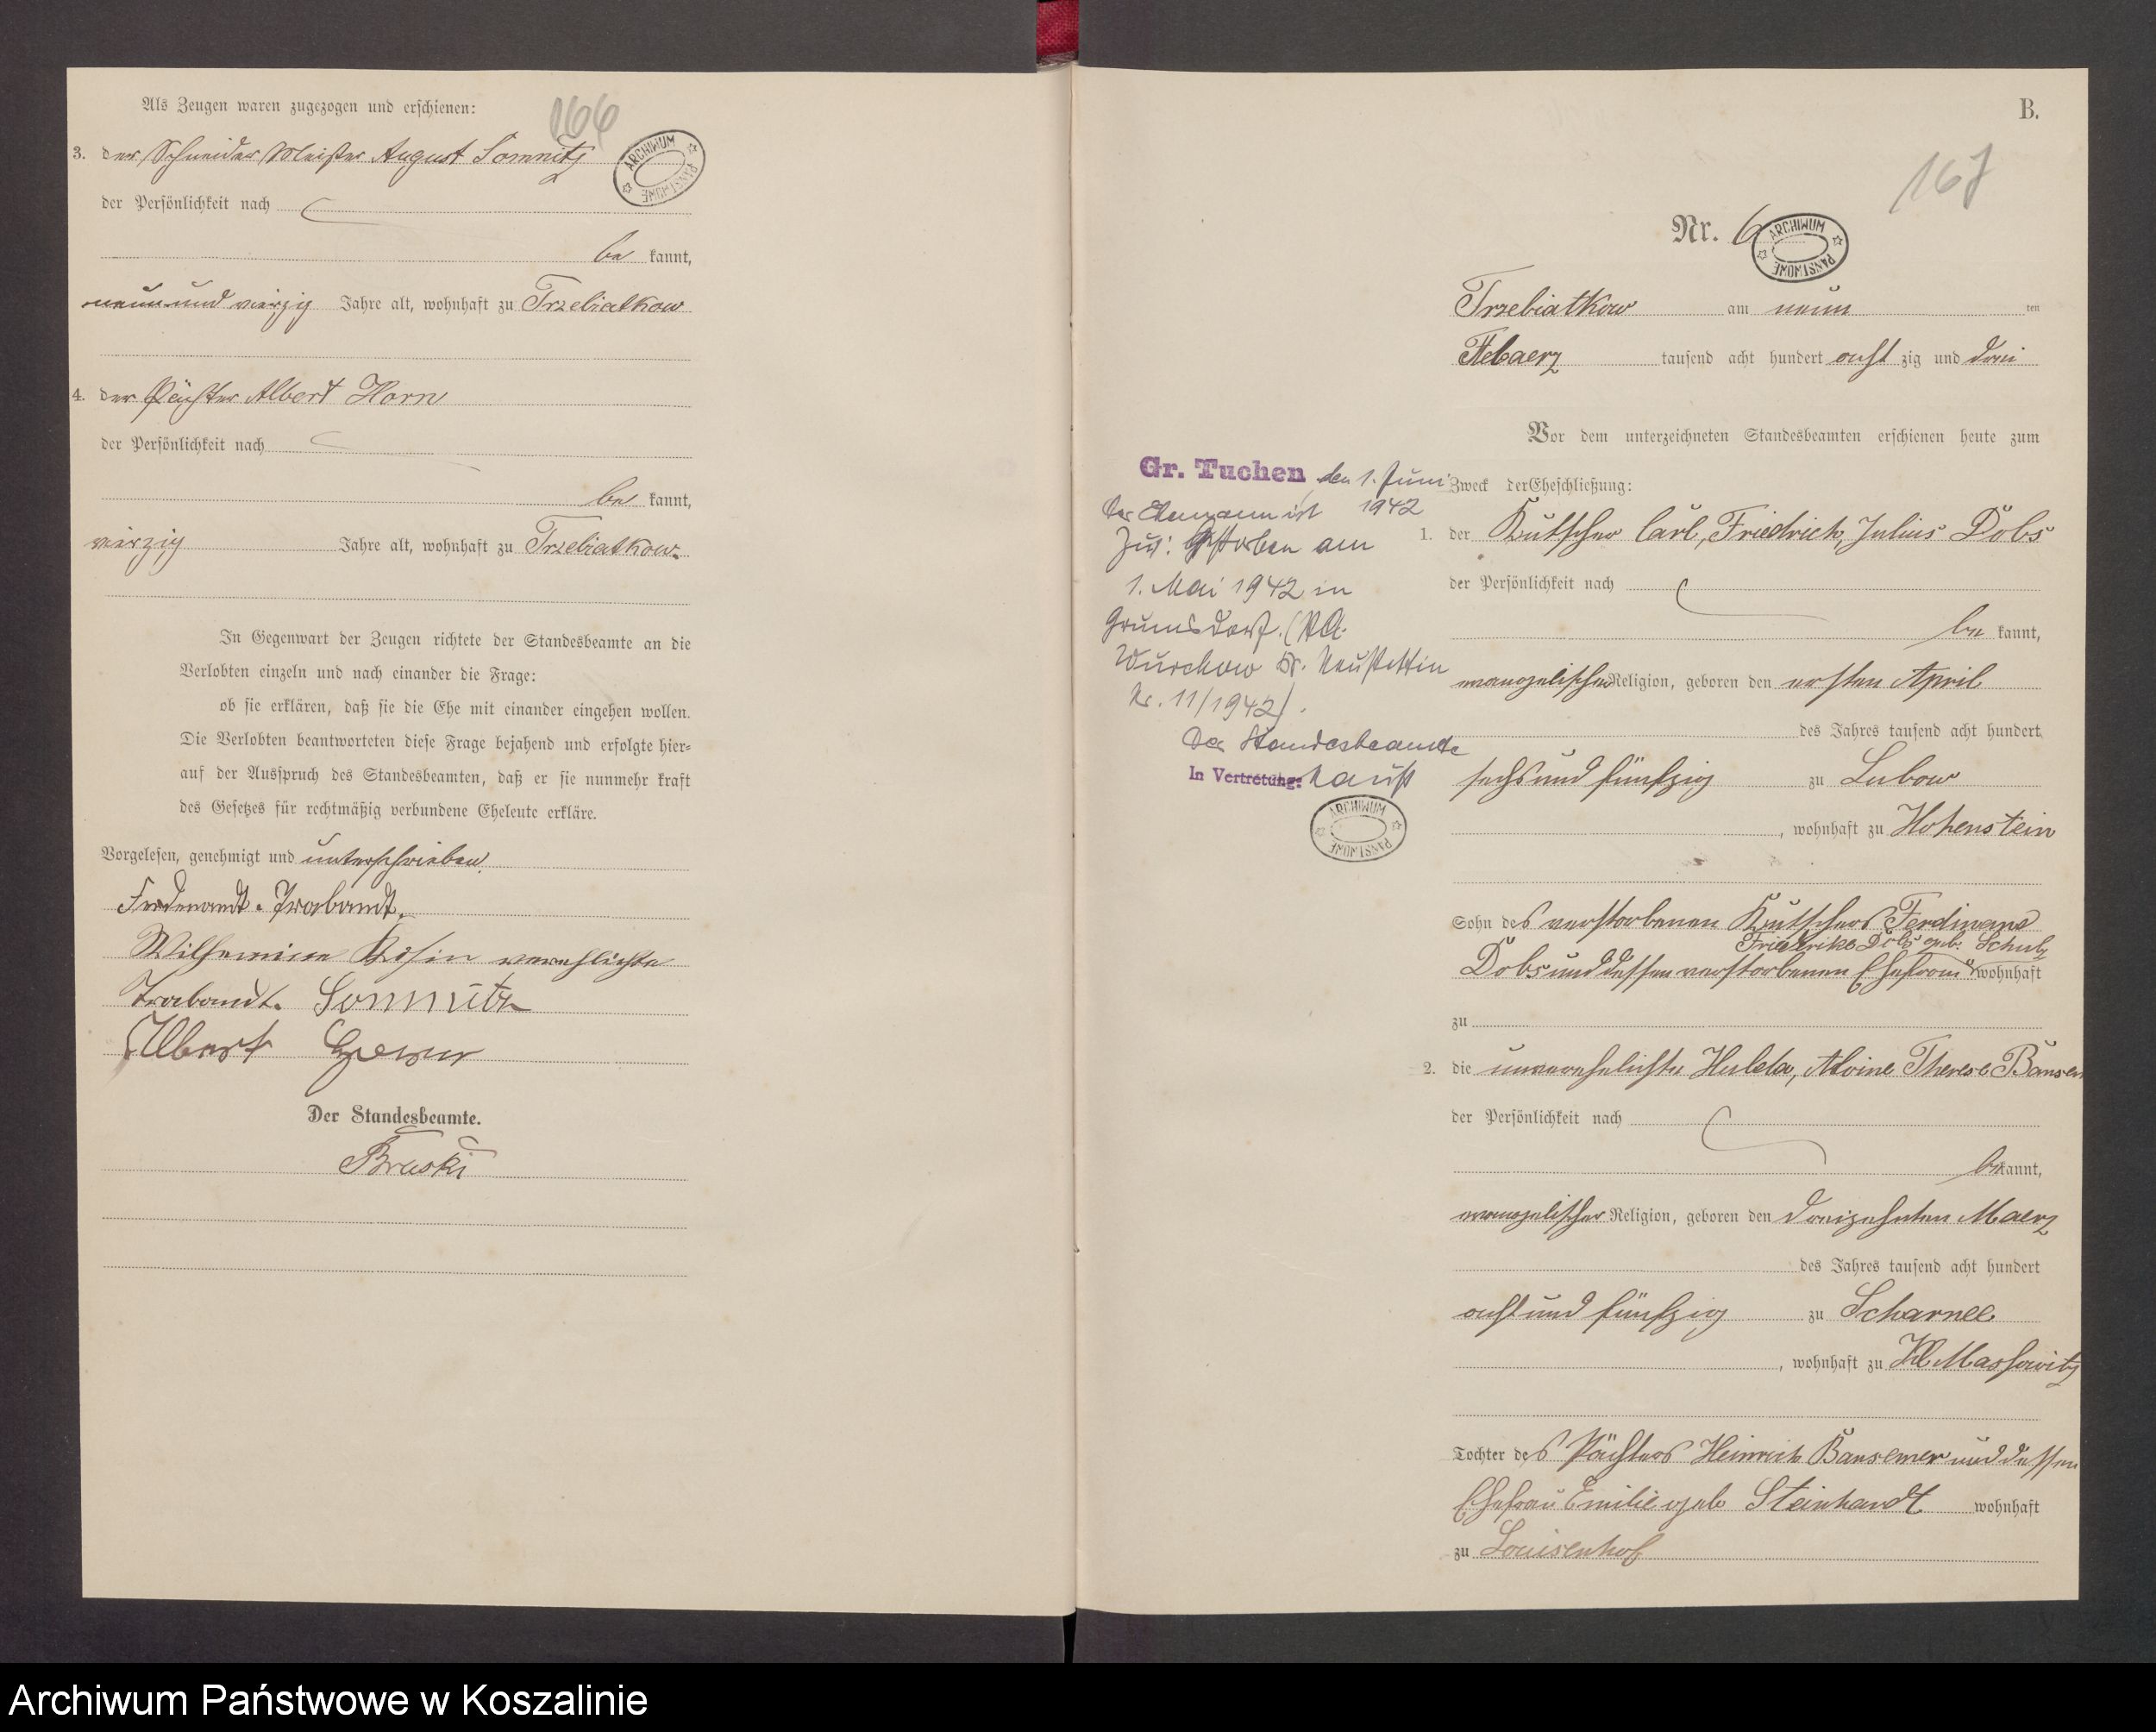 Als Zeugen waren zugezogen und erschienen:
166
3. der Schneider Meister August Somnitz
ARCHIWUM PAŃSTWOWE
der Persönlichkeit nach
be kannt,
neun und vierzig Jahre alt, wohnhaft zu Trzebiatkow
4. der Pächter Albert Horn
der Persönlichkeit nach
be kannt,
vierzig Jahre alt, wohnhaft zu Trzebiatkow.
In Gegenwart der Zeugen richtete der Standesbeamte an die
Verlobten einzeln und nach einander die Frage:
ob sie erklären, daß sie die Ehe mit einander eingehen wollen.
Die Verlobten beantworteten diese Frage bejahend und erfolgte hier-
auf der Ausspruch des Standesbeamten, daß er sie nunmehr kraft
des Gesetzes für rechtmäßig verbundene Eheleute erkläre.
Vorgelesen, genehmigt und unterschrieben.
Ferdenandt. Trabandt.
Wilhemine Rosin verehlichte
Trabandt. Sommitz
Albert
Der Standesbeamte.
Braski
B.
167
Nr. 6
ARCHIWUM PAŃSTWOWE
Trzebiatkow am neun ten
Maerz tausend acht hundert acht zig und drei
Vor dem unterzeichneten Standesbeamten erschienen heute zum
Zweck der Eheschließung:
1. der Kutscher Carl, Friedrich, Julius Dobs
der Persönlichkeit nach
be kannt,
evangelischer Religion, geboren den ersten April
des Jahres tausend acht hundert
sechs und fünfzig zu Lubow
, wohnhaft zu Hohenstein
Sohn des verstorbenen Kutschers Ferdinand
Friedrike Dobs geb. Schulz
Dobs und dessen verstorbenen Ehefrau wohnhaft
zu
2. die unverehelichte Hulda, Alvine Therese Bansem
der Persönlichkeit nach
be kannt,
evangelischer Religion, geboren den dreizehnten Maerz
des Jahres tausend acht hundert
acht und fünfzig zu Scharnee
, wohnhaft zu Kl Massowitz
Tochter des Pächters Heinrich Bansemer und dessen
Ehefrau Emilie geb Steinhardt wohnhaft
zu Louisenhof
Gr. Tuchen, den 1. Juni
1942
Der Ehemann ist
gestorben am
1. Mai 1942 in
Grumsdorf. (StA.
Wurchow Kr. Neustettin
Nr. 11/1942).
Der Standesbeamte
In Vertretung:
ARCHIWUM PAŃSTWOWE
Archiwum Państwowe w Koszalinie